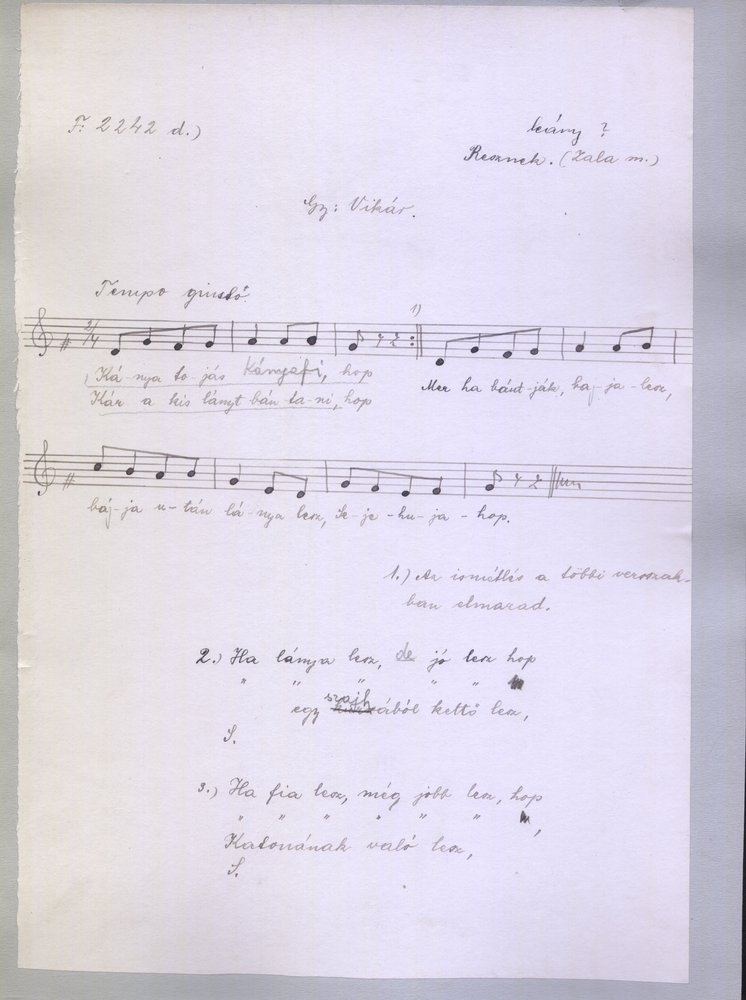 F: 2242 d.)
leány ?
Resznek. (Zala m.)
Gy: Vikár.
Tempo giusto.
2/4
1)
Ká-nya to-jás kányafi, hop
Mer ha bánt-ják, ba-ja lesz,
Kár a kis lányt bán-ta-ni, hop
bá-ja u-tán lá-nya lesz, ik-je-hu-ja-hop.
1.) Az ismétlés a többi versszak-
ban elmarad.
2.) Ha lánya lesz, de jó lesz hop
" " " " "
szajh
egy ából kettő lesz,
S.
3.) Ha fia lesz, még jobb lesz, hop
" " " " " " ,
Katonának való lesz,
S.